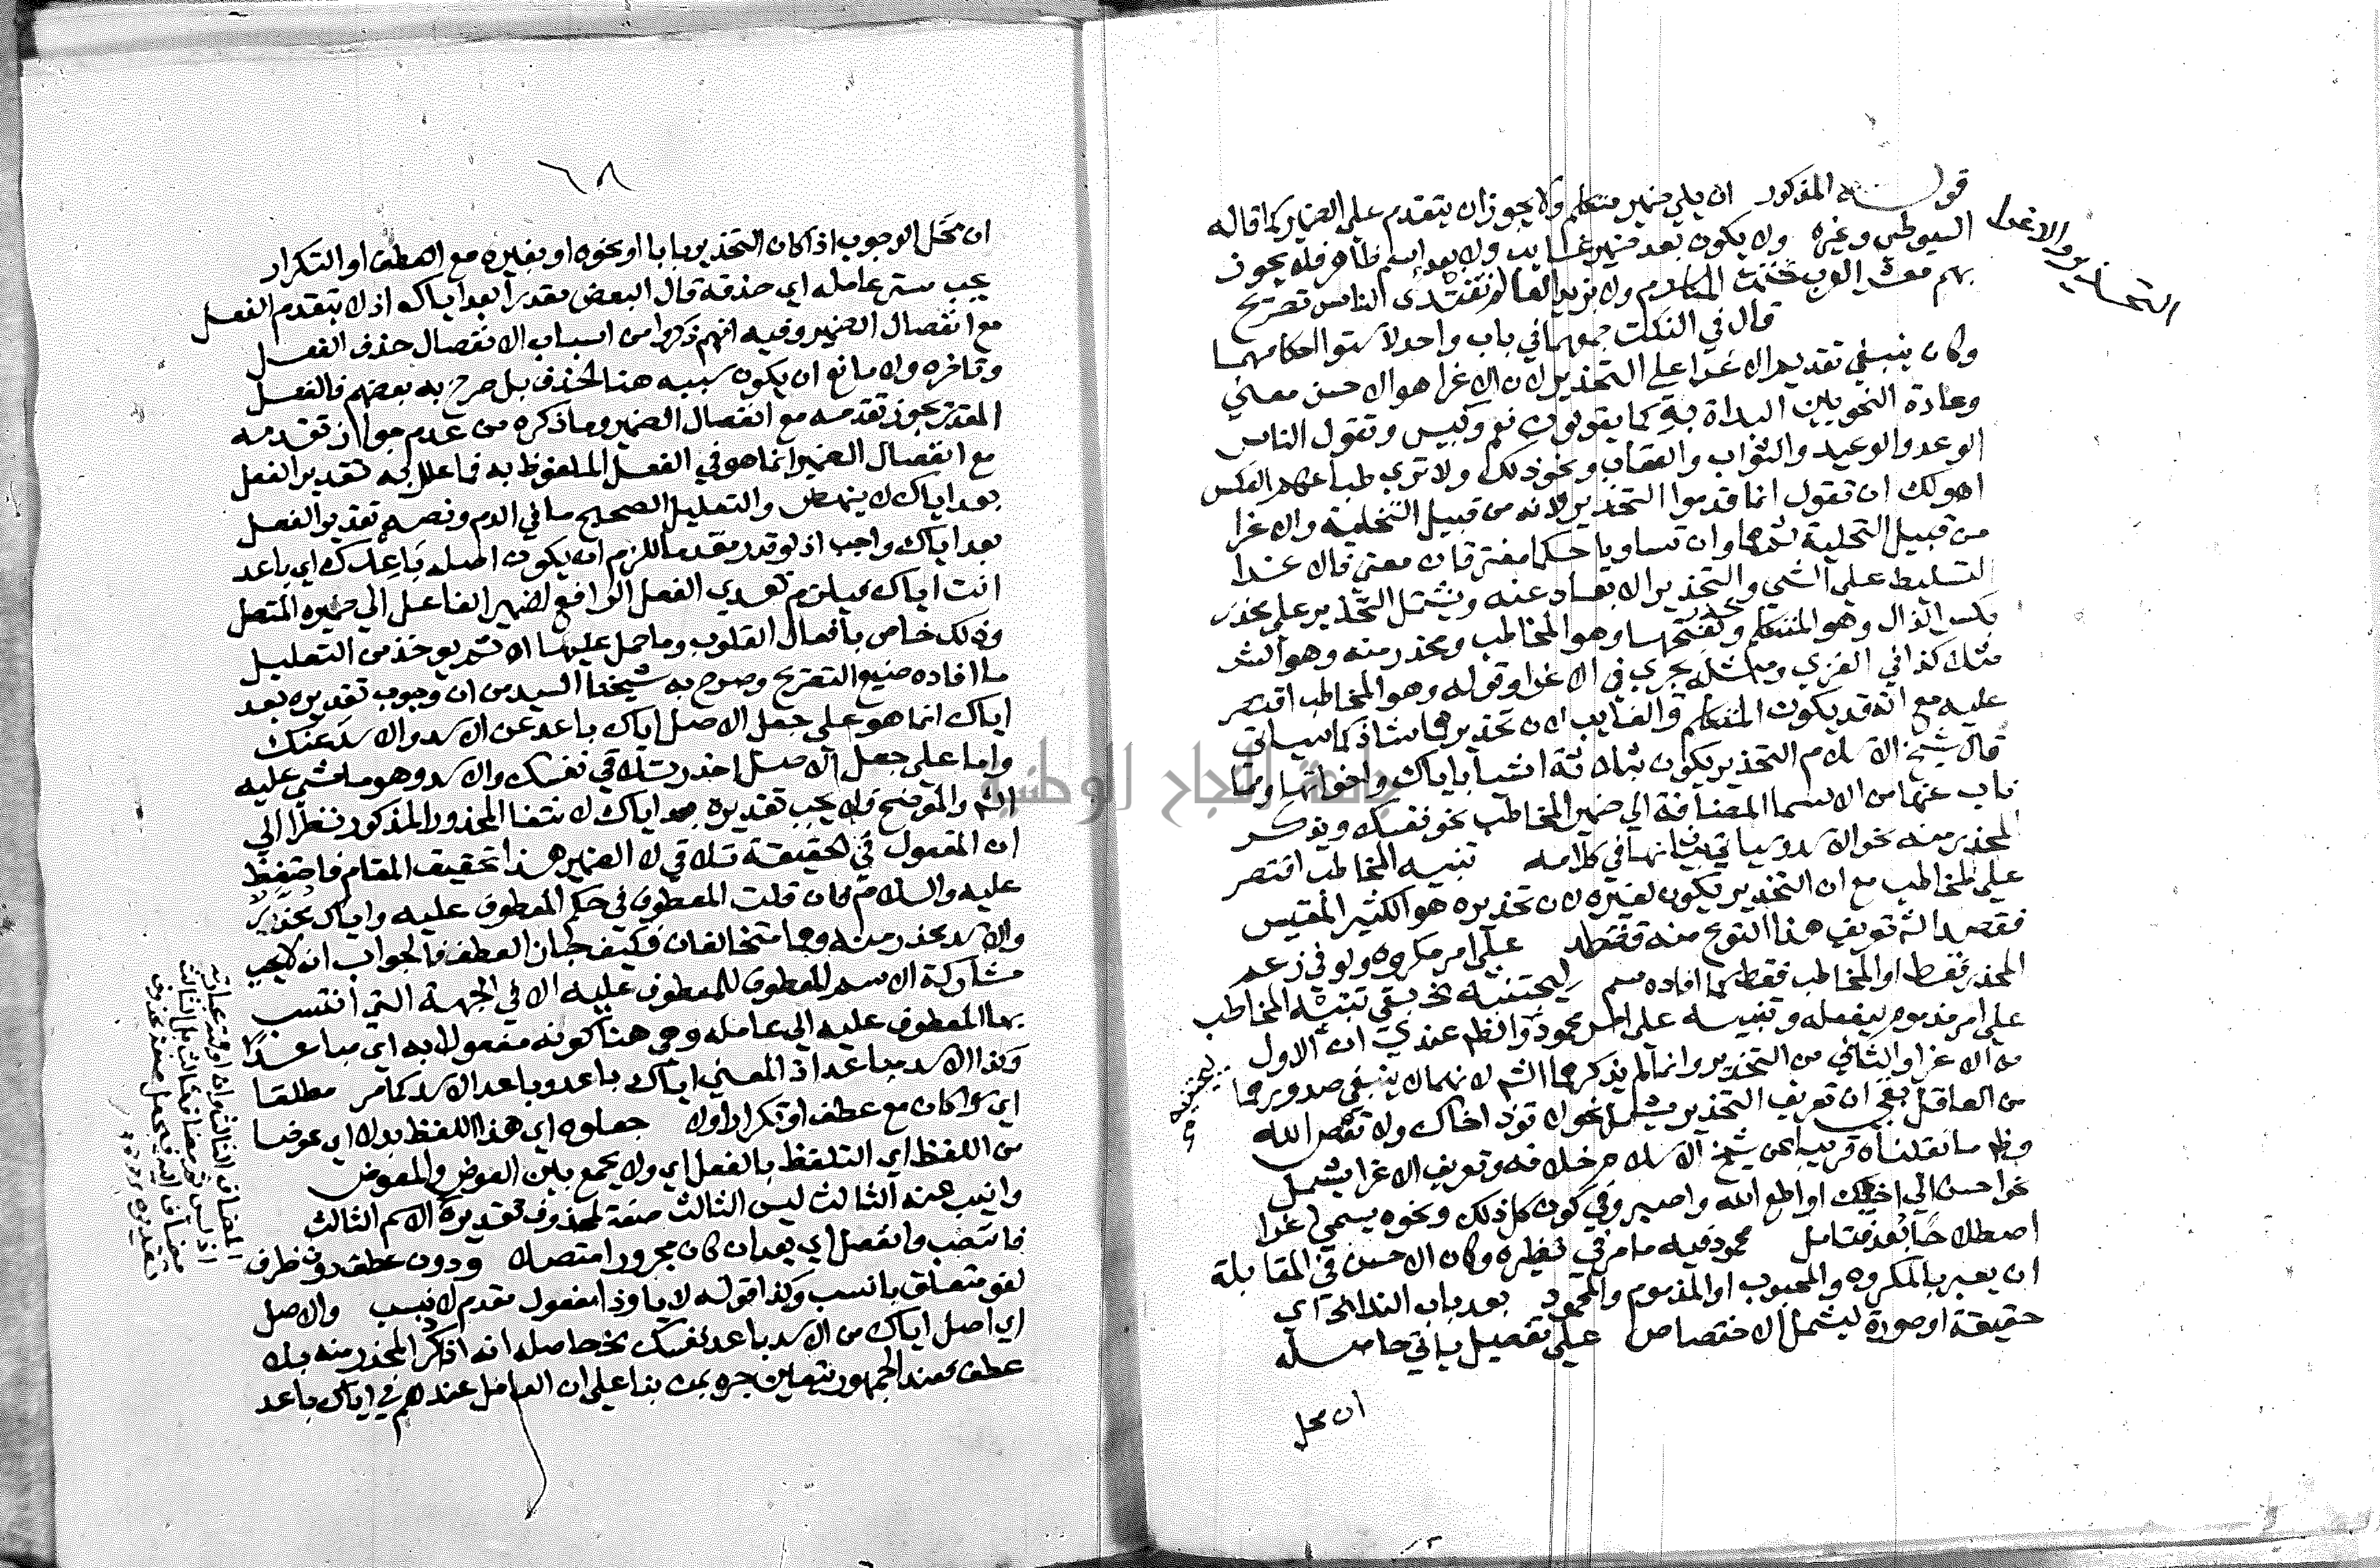 التحذير والاغراء
قوله المذكور ان يلي ضمير متكلم ولا يجوز ان يتقدم على الضمير كما قاله
السيوطي وغيره ولا يكون بعد ضمير غايب ولا بعد اسم ظاهر فلا يجوز
بهم معشر العرب ختمت المكارم ولا بزيد العالم تقتدى الناس تصريح
قال في النكت جمعهما في باب واحد لاستوا احكامهما
وكان ينبغي تقديم الاغرا على التحذير لان الاغرا هو الاحسن معنى
وعادة النحويين البداة به كما يقولون نعم وبيس وتقول الناس
الوعد والوعيد والثواب والعقاب ونحو ذلك ولا ترى طباعهم العكس
اهـ ولك ان تقول انما قدموا التحذير لانه من قبيل التخلية والاغرا
من قبيل التحلية ثم هما وان تساويا حكما مفترقان معنى فالاغرا
التسليط على الشي والتحذير الابعاد عنه ويشتمل التحذير على محذر
بكسر الذال وهو المتكلم ومحذر بفتحها وهو المخاطب ومحذر منه وهو الشر
مثلا كذا في الفزي ومثله يجري في الاغرا وقوله وهو المخاطب اقتصر
عليه مع انه قد يكون المتكلم والغايب لان تحذيرهما شاذ كما سياتي
قال شيخ الاسلام التحذير يكون بثلاثة اشيا باياك واخواتها وبما
ناب عنها من الاسما المضافة الى ضمير المخاطب نحو نفسك وبذكر
المحذر منه نحو الاسد وسياتي بيانها في كلامه تنبيه المخاطب اقتصر
على المخاطب مع ان التحذير يكون لغيره لان تحذيره هو الكثير المقيس
فقصد الشـ تعريف هذا النوع منه فقط على امر مكروه ولو في زعم
المحذر فقط او المخاطب فقط كما افاده سم ليجتنبه نحـ بقي تنبيه المخاطب
على امر مذموم ليفعله وتنبيهه على امر محمود ليجتنبه والظـ عندي ان الاول
من الاغرا والثاني من التحذير وانما لم يذكرهما الشـ لانهما لا ينبغي صدورهما
من العاقل بقي ان تعريف التحذير يشمل نحو لا تؤذ اخاك ولا تعص الله
وظـ ما نقلناه قريبا عن شيخ الاسلام خلافه وتعريف الاغرا يشمل
نحو احسن الى اخيك او اطع الله واصبر وفي كون كل ذلك ونحوه يسمى اغرا
اصطلاحا بعد فتامل محمود فيه ما مر في نظيره وكان الاحسن في المقابلة
ان يعبر بالمكروه والمحبوب او المذموم والمحمود بعد باب الندا نحـ اي
حقيقة او صورة ليشمل الاختصاص على تفصيل ياتي حاصله
ان محل
٦٨
ان محل الوجوب اذا كان التحذير بايا او نحوه او بغيره مع العطف او التكرار
يجب ستر عامله اي حذفه قال البعض مقدرا بعد اياك اذ لا يتقدم الفعل
مع انفصال الضمير وفيه انهم ذكروا من اسباب الانفصال حذف الفعل
وتاخره ولا مانع ان يكون سببه هنا الحذف بل صرح به بعضهم فالفعل
المقدر يجوز تقدمه مع انفصال الضمير وما ذكره من عدم جواز تقدمه
مع انفصال الضمير انما هو في الفعل الملفوظ به فما علل به تقدير الفعل
بعد اياك لا ينهض والتعليل الصحيح ما في الدم ونصه تقدير الفعل
بعد اياك واجب اذ لو قدر مقدما للزم ان يكون اصله باعدك اي باعد
انت اياك فيلزم تعدي الفعل الرافع لضمير الفاعل الى ضميره المتصل
وذلك خاص بافعال القلوب وما حمل عليها اهـ ثم يوخذ من التعليل
ما افاده صنيع التصريح وصرح به شيخنا السيد من ان وجوب تقديره بعد
اياك انما هو على جعل الاصل اياك باعد عن الاسد والاسد عنك
واما على جعل الاصل احذر تلاقي نفسك والاسد وهو ما مشى عليه
الشـ والموضح فلا يجب تقديره بعد اياك لانتفا المحذور المذكور نظرا الى
ان المفعول في الحقيقة تلاقي لا الضمير هذا تحقيق المقام فاحتفظ
عليه والسلام فان قلت المعطوف في حكم المعطوف عليه واياك محذر
والاسد محذر منه وهما متخالفان فكيف جاز العطف فالجواب انه لا يجب
مشاركة الاسم المعطوف للمعطوف عليه الا في الجهة التي انتسب
بها المعطوف عليه الى عامله وهي هنا كونه مفعولا به اي مباعدا
وكذا الاسد مباعدا اذ المعنى اياك باعد وباعد الاسد كما مر مطلقا
اي سوا كان مع عطف او تكرار او لا جعلوه اي هذا اللفظ بدلا اي عوضا
من اللفظ اي التلفظ بالفعل اي ولا يجمع بين العوض والمعوض
وانيب عنه الثالث ليس الثالث صفة لمحذوف تقديره الاسم الثالث
فانتصب وانفصل اي بعد ان كان مجرورا متصلا ودون عطف دون ظرف
لغو متعلق بانسب وكذا قوله لايا وذا مفعول مقدم لانسب والاصل
اي اصل اياك من الاسد باعد نفسك نحـ حاصله انه اذا ذكر المحذر منه بلا
عطف فعند الجمهور يتعين جره بمن بنا على ان العامل عندهم في اياك باعد